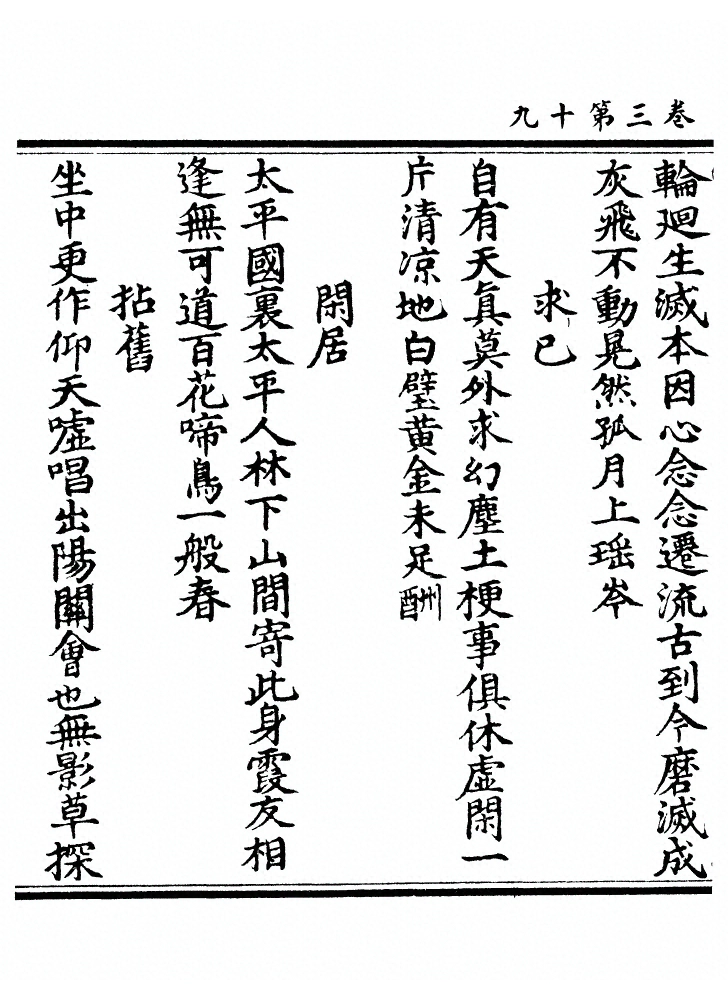 卷三第十九
輪廻生滅本因心念念遷流古到今磨滅成
灰飛不動晃然孤月上瑶岑
求已
自有天真莫外求幻塵土梗事俱休虛閑一
片清凉地白璧黃金未足酬
閑居
太平國裏太平人林下山間寄此身霞友相
逢無可道百花啼鳥一般春
拈舊
坐中更作仰天嘘唱出陽關會也無影草探